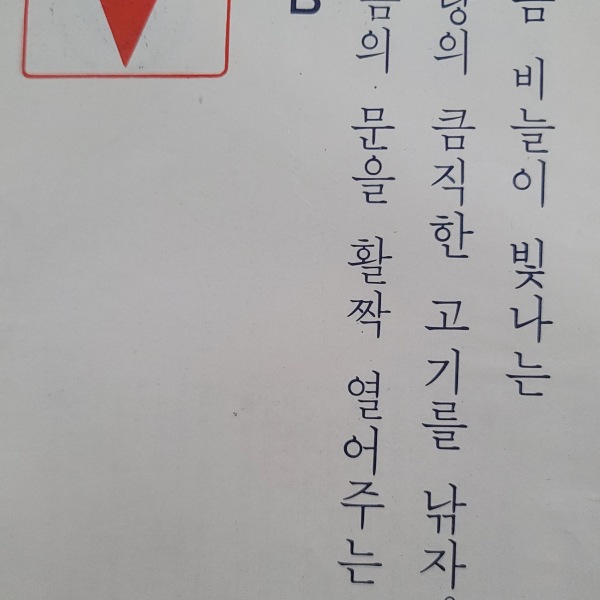 비늘이 빛나는
의 큼직한 고기를 낚자
의 문을 활짝 열어주는
B